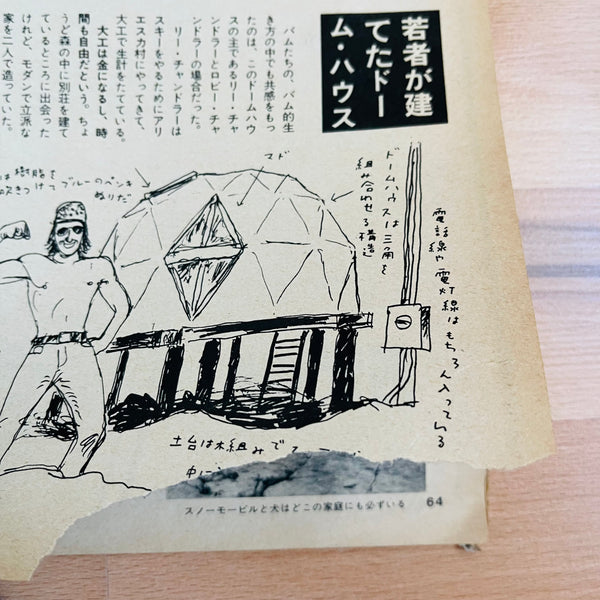 若者が建
てたドー
ム・ハウス
バムたちの、バム的生
き方の中でも共感をもっ
たのは、このドームハウ
スの主であるリー・チャ
ンドラーとロビー・チャ
ンドラーの場合だった。
リー・チャンドラーは
スキーをやるためにアリ
エスカ村にやってきて、
大工で生計をたてている。
大工は金になるし、時
間も自由だという。ちょ
うど森の中に別荘を建て
ているところに出会った
けれど、モダンで立派な
家を二人で造っていた。
電話線や電灯線はもちろん入っている
ドームハウスは三角を
組み合わせる構造
マド
は樹脂を
吹きつけてブルーのペンキ
ぬりだ
土台は木組みで
中に
スノーモービルと犬はどこの家庭にも必ずいる
64